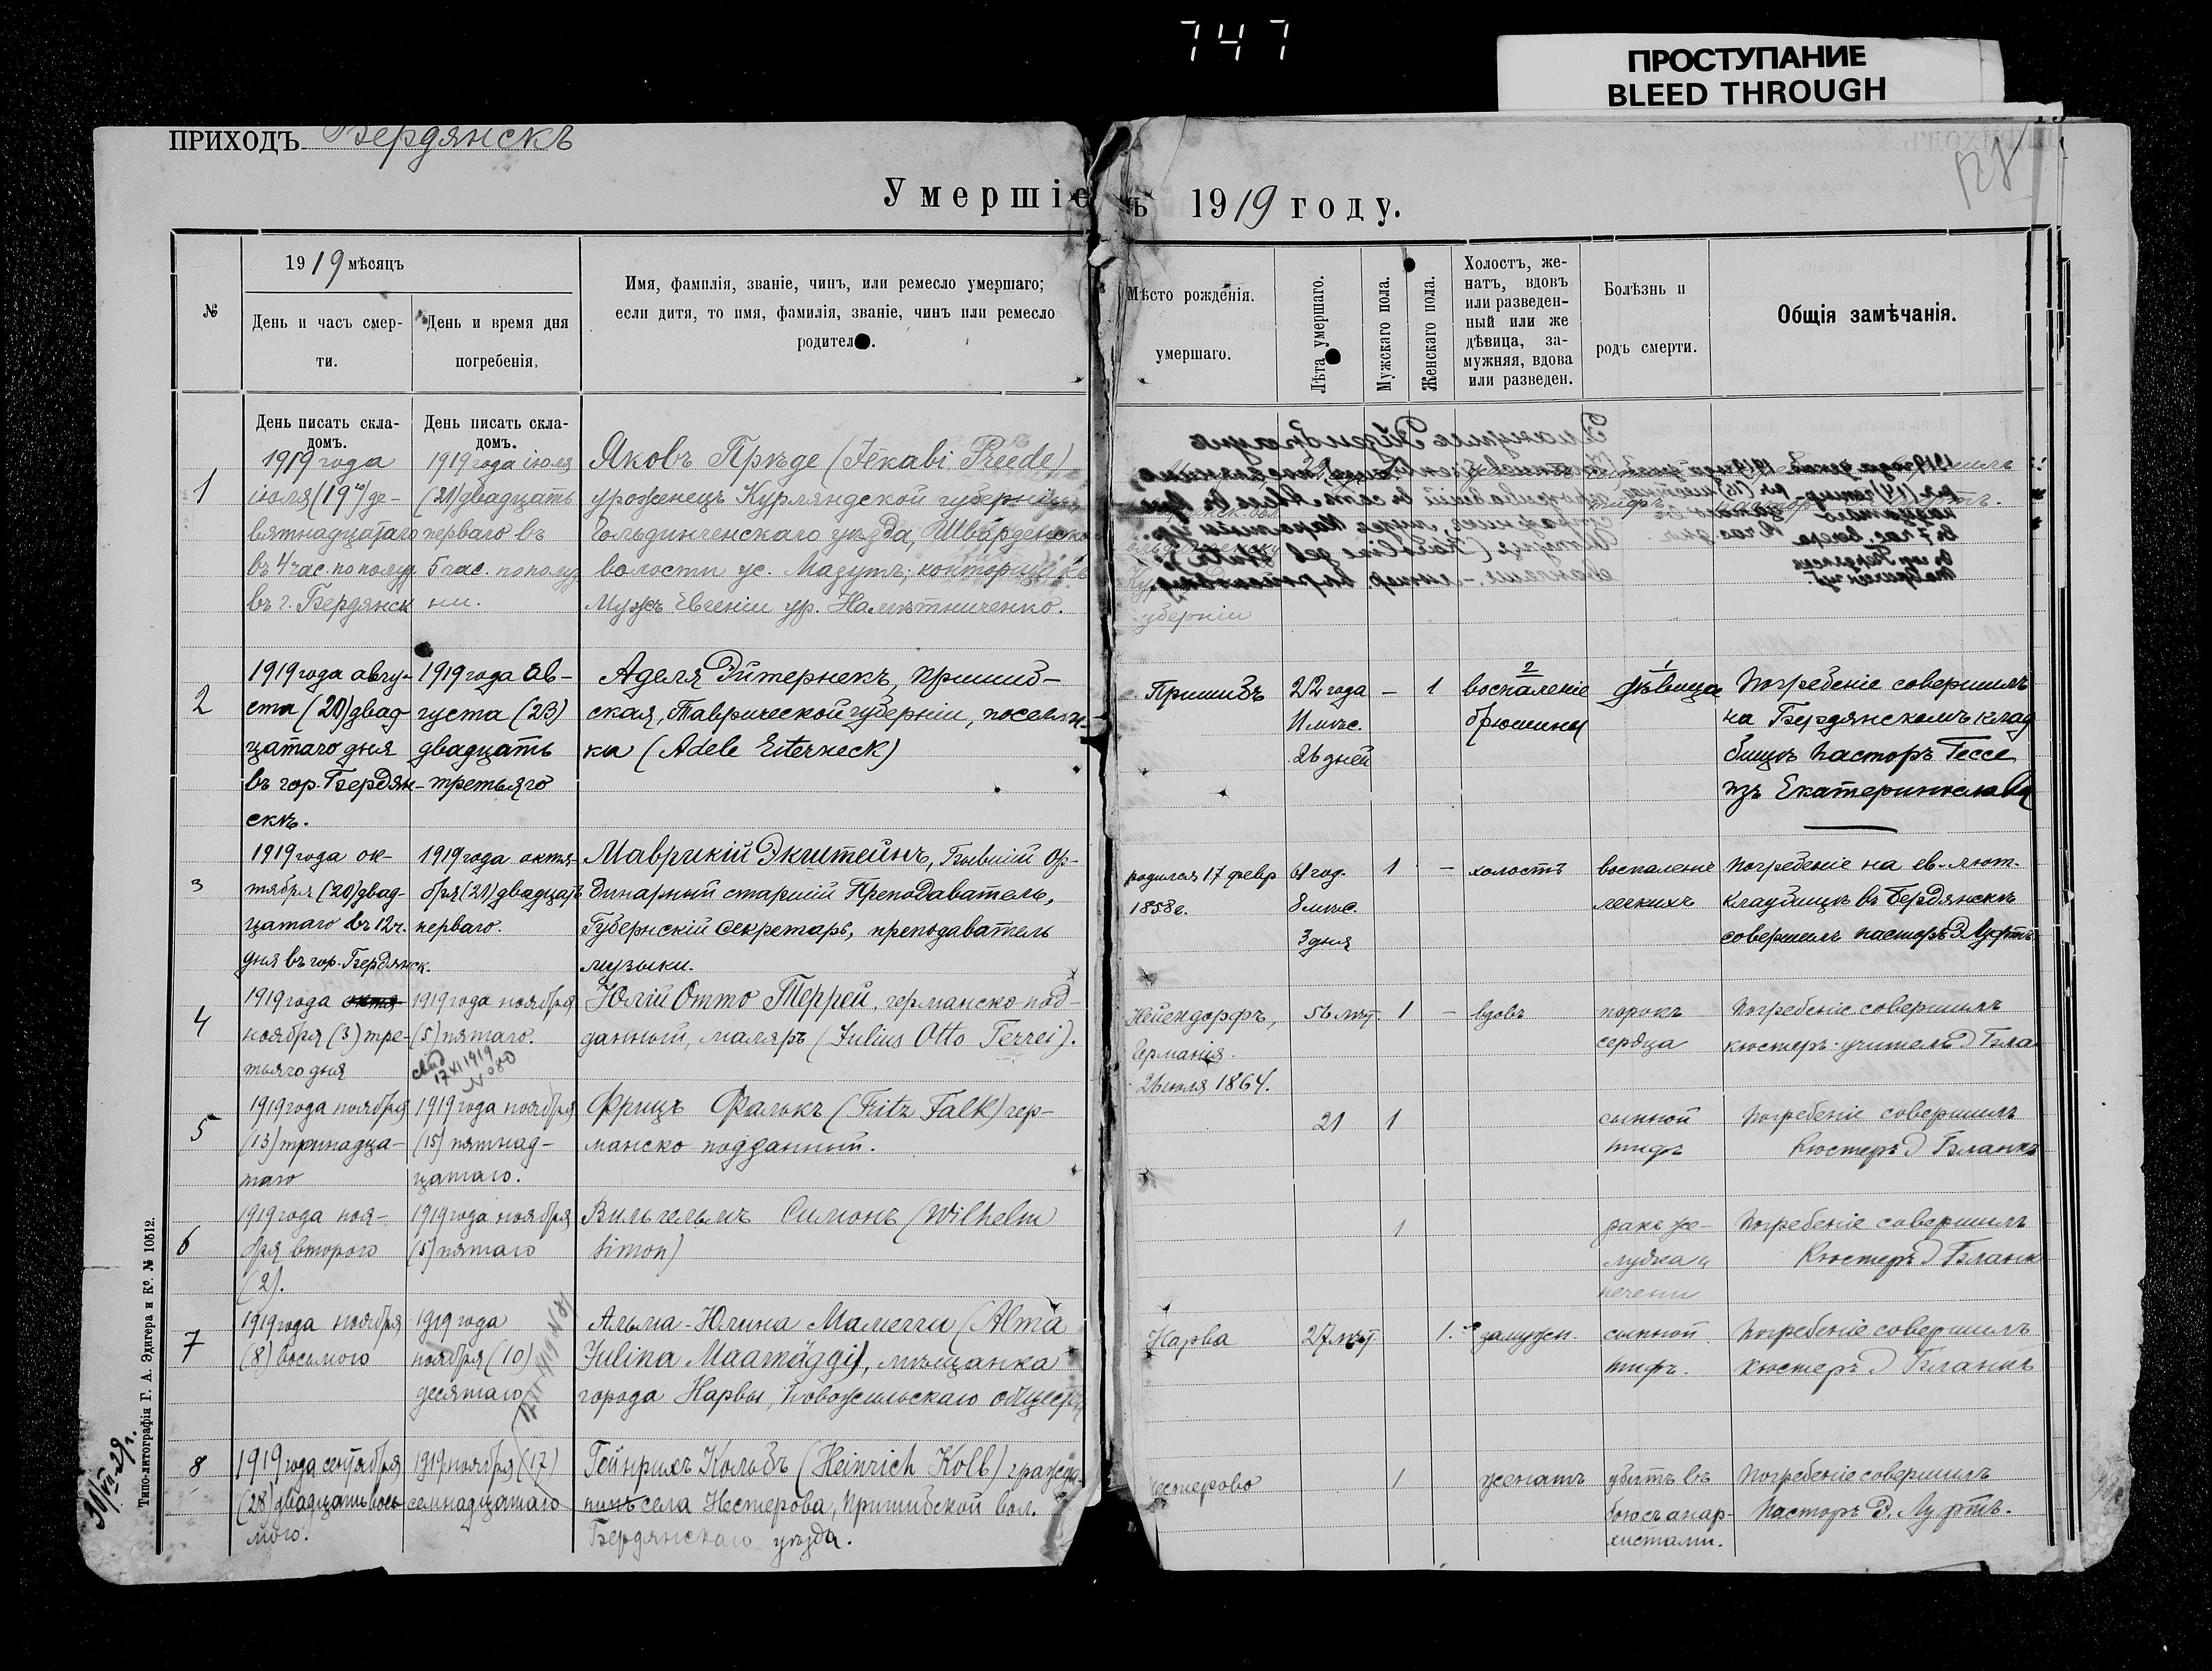 747
ПРОСТУПАНИЕ
BLEED THROUGH
ПРИХОДЪ Бердянскъ
Умершіе въ 1919 году.
№
1919 мѣсяцъ
День и часъ смер-
ти.
День и время дня
погребенія.
Имя, фамилія, званіе, чинъ, или ремесло умершаго;
если дитя, то имя, фамилія, званіе, чинъ или ремесло
родителей.
Мѣсто рожденія.
умершаго.
Лѣта умершаго.
Мужскаго пола.
Женскаго пола.
Холостъ, же-
натъ, вдовъ
или разведен-
ный или же
дѣвица, за-
мужняя, вдова
или разведен.
Болѣзнь и
родъ смерти.
Общія замѣчанія.
День писать скла-
домъ.
День писать скла-
домъ.
1
1919 года
іюля (19го) де-
вятнадцатаго
въ 4 час. по полуд
въ г. Бердянск
1919 года іюля
(21) двадцать
перваго въ
5 час. по полуд
ни.
Яковъ Прѣде (Jēkabi Preede)
уроженецъ Курляндской губерніи
Гольдингенскаго уѣзда, Шварденской
волости ус. Мазутъ, конторщикъ
Мужъ Евгеніи ур. Намѣтниченко.
губерніи
2
1919 года авгу-
ста (20) двад-
цатаго дня
въ гор. Бердян-
скѣ.
1919 года ав-
густа (23)
двадцать
третьяго
Аделя Эйтернекъ, пришиб-
ская, Таврической губерніи, поселян-
ка (Adele Eiterneck)
Пришибъ
22 года
11 мѣс.
26 дней
—
1
2
воспаленіе
брюшины
1
дѣвица
Погребеніе совершилъ
на Бердянскомъ клад
бищѣ пасторъ Гессе
изъ Екатеринослава
3
1919 года ок-
тября (20) двад-
цатаго въ 12 ч.
дня въ гор. Бердянск.
1919 года октя-
бря (21) двадцать
перваго.
Маврикій Экштейнъ, бывшій ор-
динарный старшій Преподаватель,
Губернскій секретарь, преподаватель
музыки.
родился 17 февр
1858 г.
61 год.
8 мѣс.
3 дня
1
—
холостъ
воспаленіе
легкихъ
Погребеніе на ев.-лют.
кладбищѣ въ Бердянскѣ
совершилъ пасторъ Э. Луфтъ.
4
1919 года октя
ноября (3) тре-
тьяго дня
1919 года ноября
(5) пятаго.
свид
17 XI 1919
N 080
Юлій Отто Террей, германско-под-
данный, маляръ (Julius Otto Terrei).
Нейендорфъ,
Германія.
26 іюля 1864.
56 лѣт.
1
—
вдовъ
порокъ
сердца
Погребеніе совершилъ
кюстеръ-учитель Э Бла
5
1919 года ноября
(13) тринадца-
таго
1919 года ноября
(15) пятнад-
цатаго.
Фрицъ Фалькъ (Fritz Falk) гер-
манско подданный.
21
1
сыпной
тифъ
Погребеніе совершилъ
Кюстеръ Э Бланкъ
6
1919 года ноя-
бря второго
(2).
1919 года ноября
(5) пятаго
Вильгельмъ Симонъ (Wilhelm
Simon)
1
ракъ же-
лудка и
печени
Погребеніе совершилъ
Кюстеръ Э Бланк
7
1919 года ноября
(8) восьмого
1919 года
ноября (10)
десятаго
Альма-Юлина Мамегги (Alma
Julina Maamäggi), мѣщанка
города Нарвы,
Нарва
27 лѣт.
1.
замужн.
сыпной
тифъ.
Погребеніе совершилъ
кюстеръ Э Бланкъ
8
1919 года сентября
(28) двадцать вось-
мого.
1919 ноября (17)
семнадцатаго
Гейнрихъ Кольбъ (Heinrich Kolb) гражда-
нинъ села Нестерова, Пришибской вол.
Бердянскаго уѣзда.
Нестерово
1
женатъ
убитъ въ
бою съ анар-
хистами.
Погребеніе совершилъ
Пасторъ Э. Луфтъ.
31/VII-29 г.
Типо-литографія Г. А. Эдигера и Ко. № 10512.